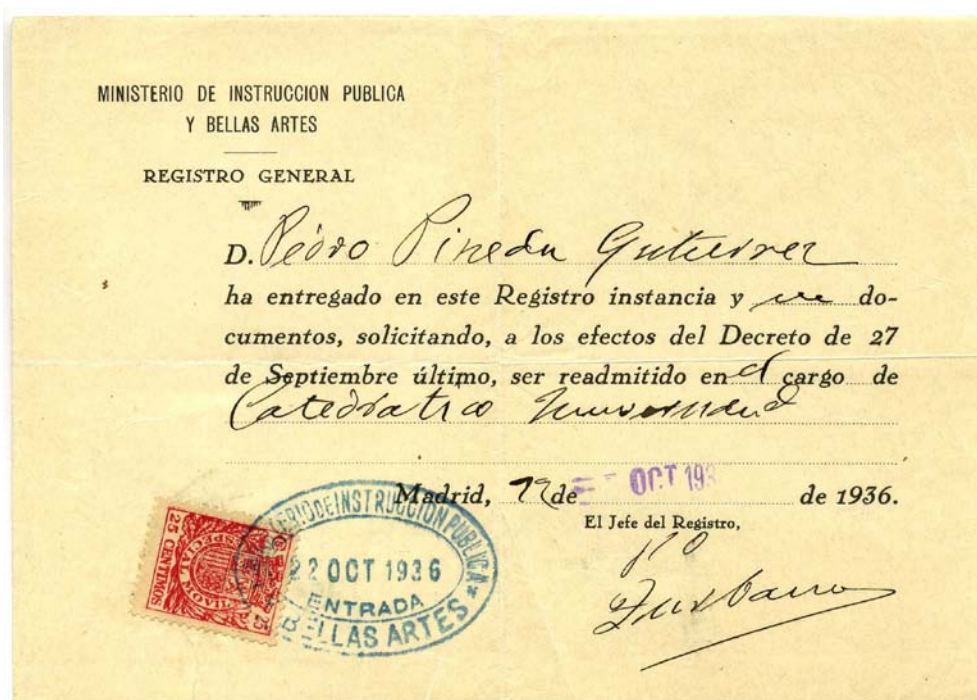 MINISTERIO DE INSTRUCCION PUBLICA
Y BELLAS ARTES
REGISTRO GENERAL
D. Pedro Pineda Gutierrez
ha entregado en este Registro instancia y un do-
cumentos, solicitando, a los efectos del Decreto de 27
de Septiembre último, ser readmitido en el cargo de
Catedratico Universidad
Madrid, 22 de OCT 193 de 1936.
El Jefe del Registro,
P.O
MINISTERIO DE INSTRUCCION PUBLICA
22 OCT 1936
ENTRADA
BELLAS ARTES
ESPECIAL MOVIL
25 CENTIMOS